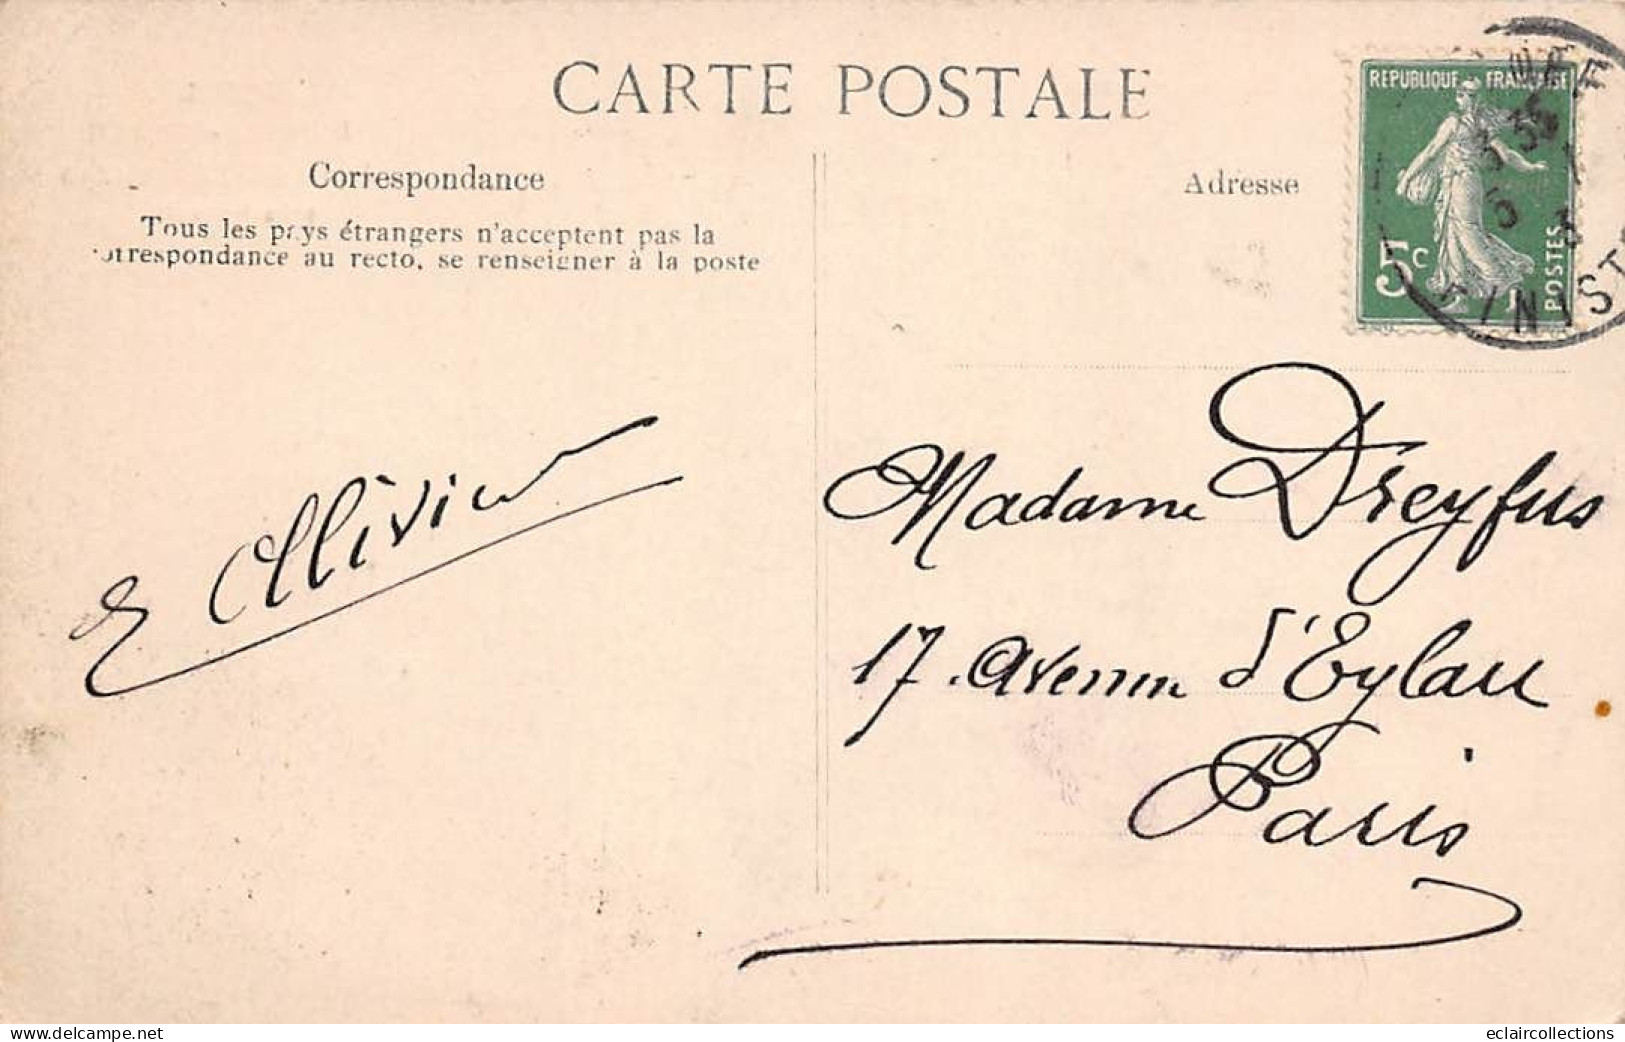 CARTE POSTALE
Correspondance
Tous les pays étrangers n'acceptent pas la
orrespondance au recto, se renseigner à la poste
Adresse
REPUBLIQUE FRANÇAISE
5c
POSTES
3 35
5
FINIST
E Ollivier
Madame Dreyfus
17. Avenue d'Eylau
Paris
www.delcampe.net
eclaircollections